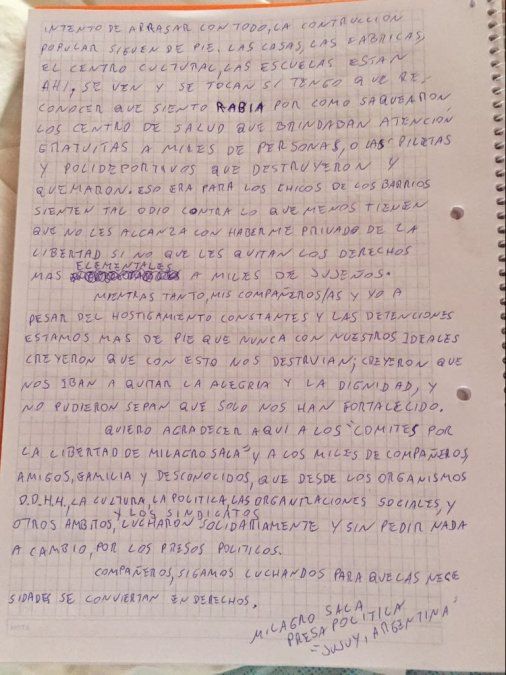 INTENTO DE ARRASAR CON TODO, LA CONTRUCCION
POPULAR SIGUEN DE PIE. LAS CASAS, LAS FABRICAS,
EL CENTRO CULTURAL, LAS ESCUELAS ESTAN
AHI, SE VEN Y SE TOCAN SI TENGO QUE RE-
CONOCER QUE SIENTO RABIA POR COMO SAQUEARON
LOS CENTRO DE SALUD QUE BRINDABAN ATENCIÓN
GRATUITAS A MILES DE PERSONAS, O LAS PILETAS
Y POLIDEPORTIVOS QUE DESTRUYERON Y
QUEMARON. ESO ERA PARA LOS CHICOS DE LOS BARRIOS
SIENTEN TAL ODIO CONTRA LO QUE MENOS TIENEN
QUE NO LES ALCANZA CON HABERME PRIVADO DE LA
LIBERTAD SI NO QUE LES QUITAN LOS DERECHOS
MAS ELEMENTALES A MILES DE JUJEÑOS.
MIENTRAS TANTO, MIS COMPAÑEROS/AS Y YO A
PESAR DEL HOSTIGAMIENTO CONSTANTES Y LAS DETENCIONES
ESTAMOS MAS DE PIE QUE NUNCA CON NUESTROS IDEALES
CREYERON QUE CON ESTO NOS DESTRUIAN; CREYERON QUE
NOS IBAN A QUITAR LA ALEGRIA Y LA DIGNIDAD, Y
NO PUDIERON SEPAN QUE SOLO NOS HAN FORTALECIDO.
QUIERO AGRADECER AQUI A LOS "COMITES POR
LA LIBERTAD DE MILAGRO SALA" Y A LOS MILES DE COMPAÑEROS,
AMIGOS, FAMILIA Y DESCONOCIDOS, QUE DESDE LOS ORGANISMOS
D.D.H.H., LA CULTURA, LA POLITICA, LAS ORGANIZACIONES SOCIALES, Y
Y LOS SINDICATOS
OTROS AMBITOS, LUCHARON SOLIDARIAMENTE Y SIN PEDIR NADA
A CAMBIO, POR LOS PRESOS POLITICOS.
COMPAÑEROS, SIGAMOS LUCHANDOS PARA QUE LAS NECE
SIDADES SE CONVIERTAN EN DERECHOS.
MILAGRO SALA
PRESA POLITICA
"JUJUY, ARGENTINA"